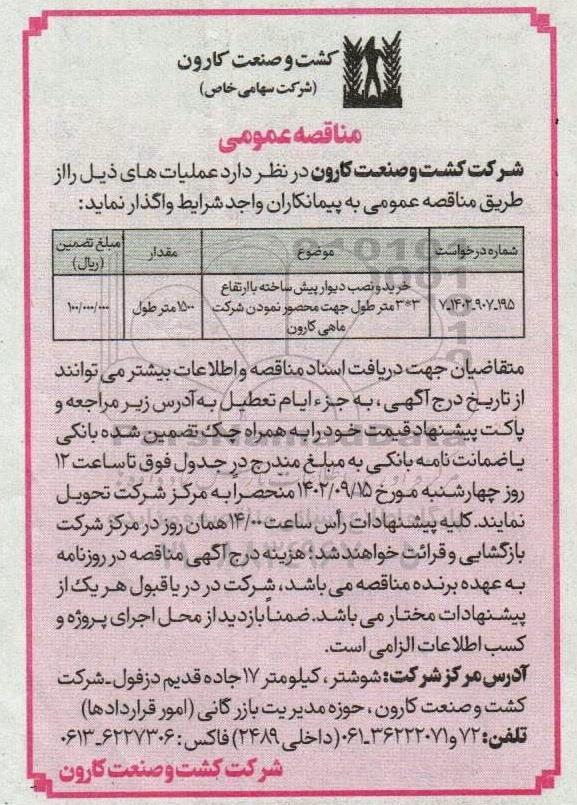 کشت و صنعت کارون
(شرکت سهامی خاص)
مناقصه عمومی
شرکت کشت و صنعت کارون در نظر دارد عملیات های ذیل را از
طریق مناقصه عمومی به پیمانکاران واجد شرایط واگذار نماید:
شماره درخواست موضوع مقدار مبلغ تضمین (ریال)
خرید و نصب دیوار پیش ساخته با ارتفاع
۷ـ۱۴۰۲ـ۹۰۷ـ۱۹۵ ۳*۳ متر طول جهت محصور نمودن شرکت ۱۵۰۰ متر طول ۱۰۰/۰۰۰/۰۰۰
ماهی کارون
متقاضیان جهت دریافت اسناد مناقصه و اطلاعات بیشتر می توانند
از تاریخ درج آگهی، به جزء ایام تعطیل به آدرس زیر مراجعه و
پاکت پیشنهاد قیمت خود را به همراه چک تضمین شده بانکی
یا ضمانت نامه بانکی به مبلغ مندرج در جدول فوق تا ساعت ۱۲
روز چهارشنبه مورخ ۱۴۰۲/۰۹/۱۵ منحصراً به مرکز شرکت تحویل
نمایند. کلیه پیشنهادات رأس ساعت ۱۴/۰۰ همان روز در مرکز شرکت
بازگشایی و قرائت خواهند شد؛ هزینه درج آگهی مناقصه در روزنامه
به عهده برنده مناقصه می باشد، شرکت در رد یا قبول هر یک از
پیشنهادات مختار می باشد. ضمناً بازدید از محل اجرای پروژه و
کسب اطلاعات الزامی است.
آدرس مرکز شرکت: شوشتر، کیلومتر ۱۷ جاده قدیم دزفول ـ شرکت
کشت و صنعت کارون، حوزه مدیریت بازرگانی (امور قراردادها)
تلفن: ۷۲ و ۳۶۲۲۲۰۷۱ـ۰۶۱ (داخلی ۲۴۸۹) فاکس: ۶۲۲۷۳۰۶ـ۰۶۱۳
شرکت کشت و صنعت کارون